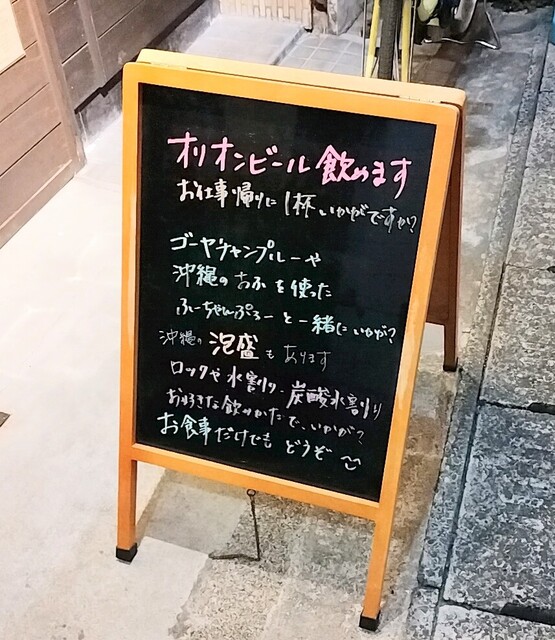 オリオンビール 飲めます
お仕事帰りに 1杯 いかがですか?
ゴーヤチャンプルーや
沖縄の おふ を 使った
ふーちゃんぷるー と 一緒に いかが?
沖縄の 泡盛 も あります
ロックや 水割り、炭酸水割り
お好きな飲みかたで、いかが?
お食事だけでも どうぞ